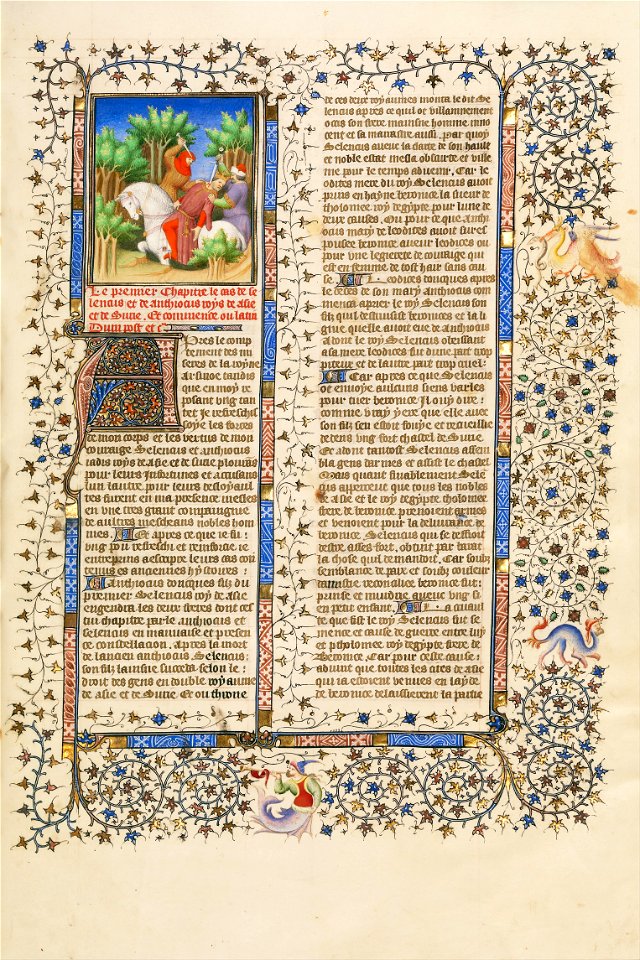 Le premier Chapitre le cas de se
lencus et de anthiocus roys de asie
et de Surie. Et commence ou latin
Dum post et c
Apres le comp
tement des mi
seres de la royne
Arsinoe tandis
que en moy re
posant ung tan
tet Je refreschis
soye les forces
de mon corps et les vertus de mon
courage Selencus et anthiocus
iadis roys de asie et de surie plourans
pour leurs infortunes et accusans
lun lautre pour leurs desloyaul
tes furent en ma presence messes
en une tres grant compaignie
de aultres mescheans nobles hom
mes. Et apres ce que ie fu
ung pou refreschi et renforcie ie
entreprins a escripre leurs cas con
tenues es anciennes hystoires.
Anthiocus doncques filz du
premier Selencus roy de asie
engendra les deux freres dont cest
chapitre parle Anthiocus et
Selencus en mauvaise et presen
te constellacion. Apres la mort
de lancien anthiocus Selencus
son filz lainsne succeda selon le
droit des gens en double royaume
de asie et de Surie. Et ou throne
de ces deux royaumes monta le dit Se
lencus apres ce quil ot villainnement
occis son frere mainsne homme inno
cent et sa marastre aussi. par quoy
Selencus aveuc la clarte de son hault
et noble estat mesla obscurte et ville
nie pour le temps advenir. Car le
odices mere du roy Selencus avoit
prins en hayne beronice la sueur de
tholomee roy degypte pour lune de
deux causes. Ou pour ce que anthi
ocus mary de leodices avoit sur es
pousee beronice aveuc leodices ou
pour une legierete de courage qui
est en femme de tost hair sans cau
se. Leodices doncques apres
le deces de son mary anthiocus com
menca a prier le roy Selencus son
filz quil destruisist beronices et la li
gne quelle avoit eue de anthiocus
adont le roy Selencus obeissant
a sa mere leodices fut dune part trop
piteux et de lautre part trop cruel.
Car apres ce que Selencus
ot envoye aulcuns siens varles
pour tuer beronice Il ouy dire
comme vray yere que elle avec
son filz sen estoit fouye et recueillie
dedens ung fort chastel de Surie
Et adont tantost Selencus assem
bla gens darmes et assist le chastel
Mais quant finablement Sele
cus apperceut que tous les nobles
de asie et le roy degypte tholomee
frere de beronice prenoient armes
et venoient pour la delivrance de
beronice. Selencus qui se deffioit
destre assez fort, obtint par favat
la chose quil demandoit. Car soubz
semblance de paix et soubz couleur
damistie reconsiliee beronice fut
prinse et murdrie aveuc ung si
en petit enfant. Il a avait
que fist le roy Selencus fut se
mence et cause de guerre entre luy
et ptholomee roy degypte frere de
beronice. Car pour celle cause
advint que toutes les cites de asie
qui ia estoient venues en layde
de beronice delaissierent la partie